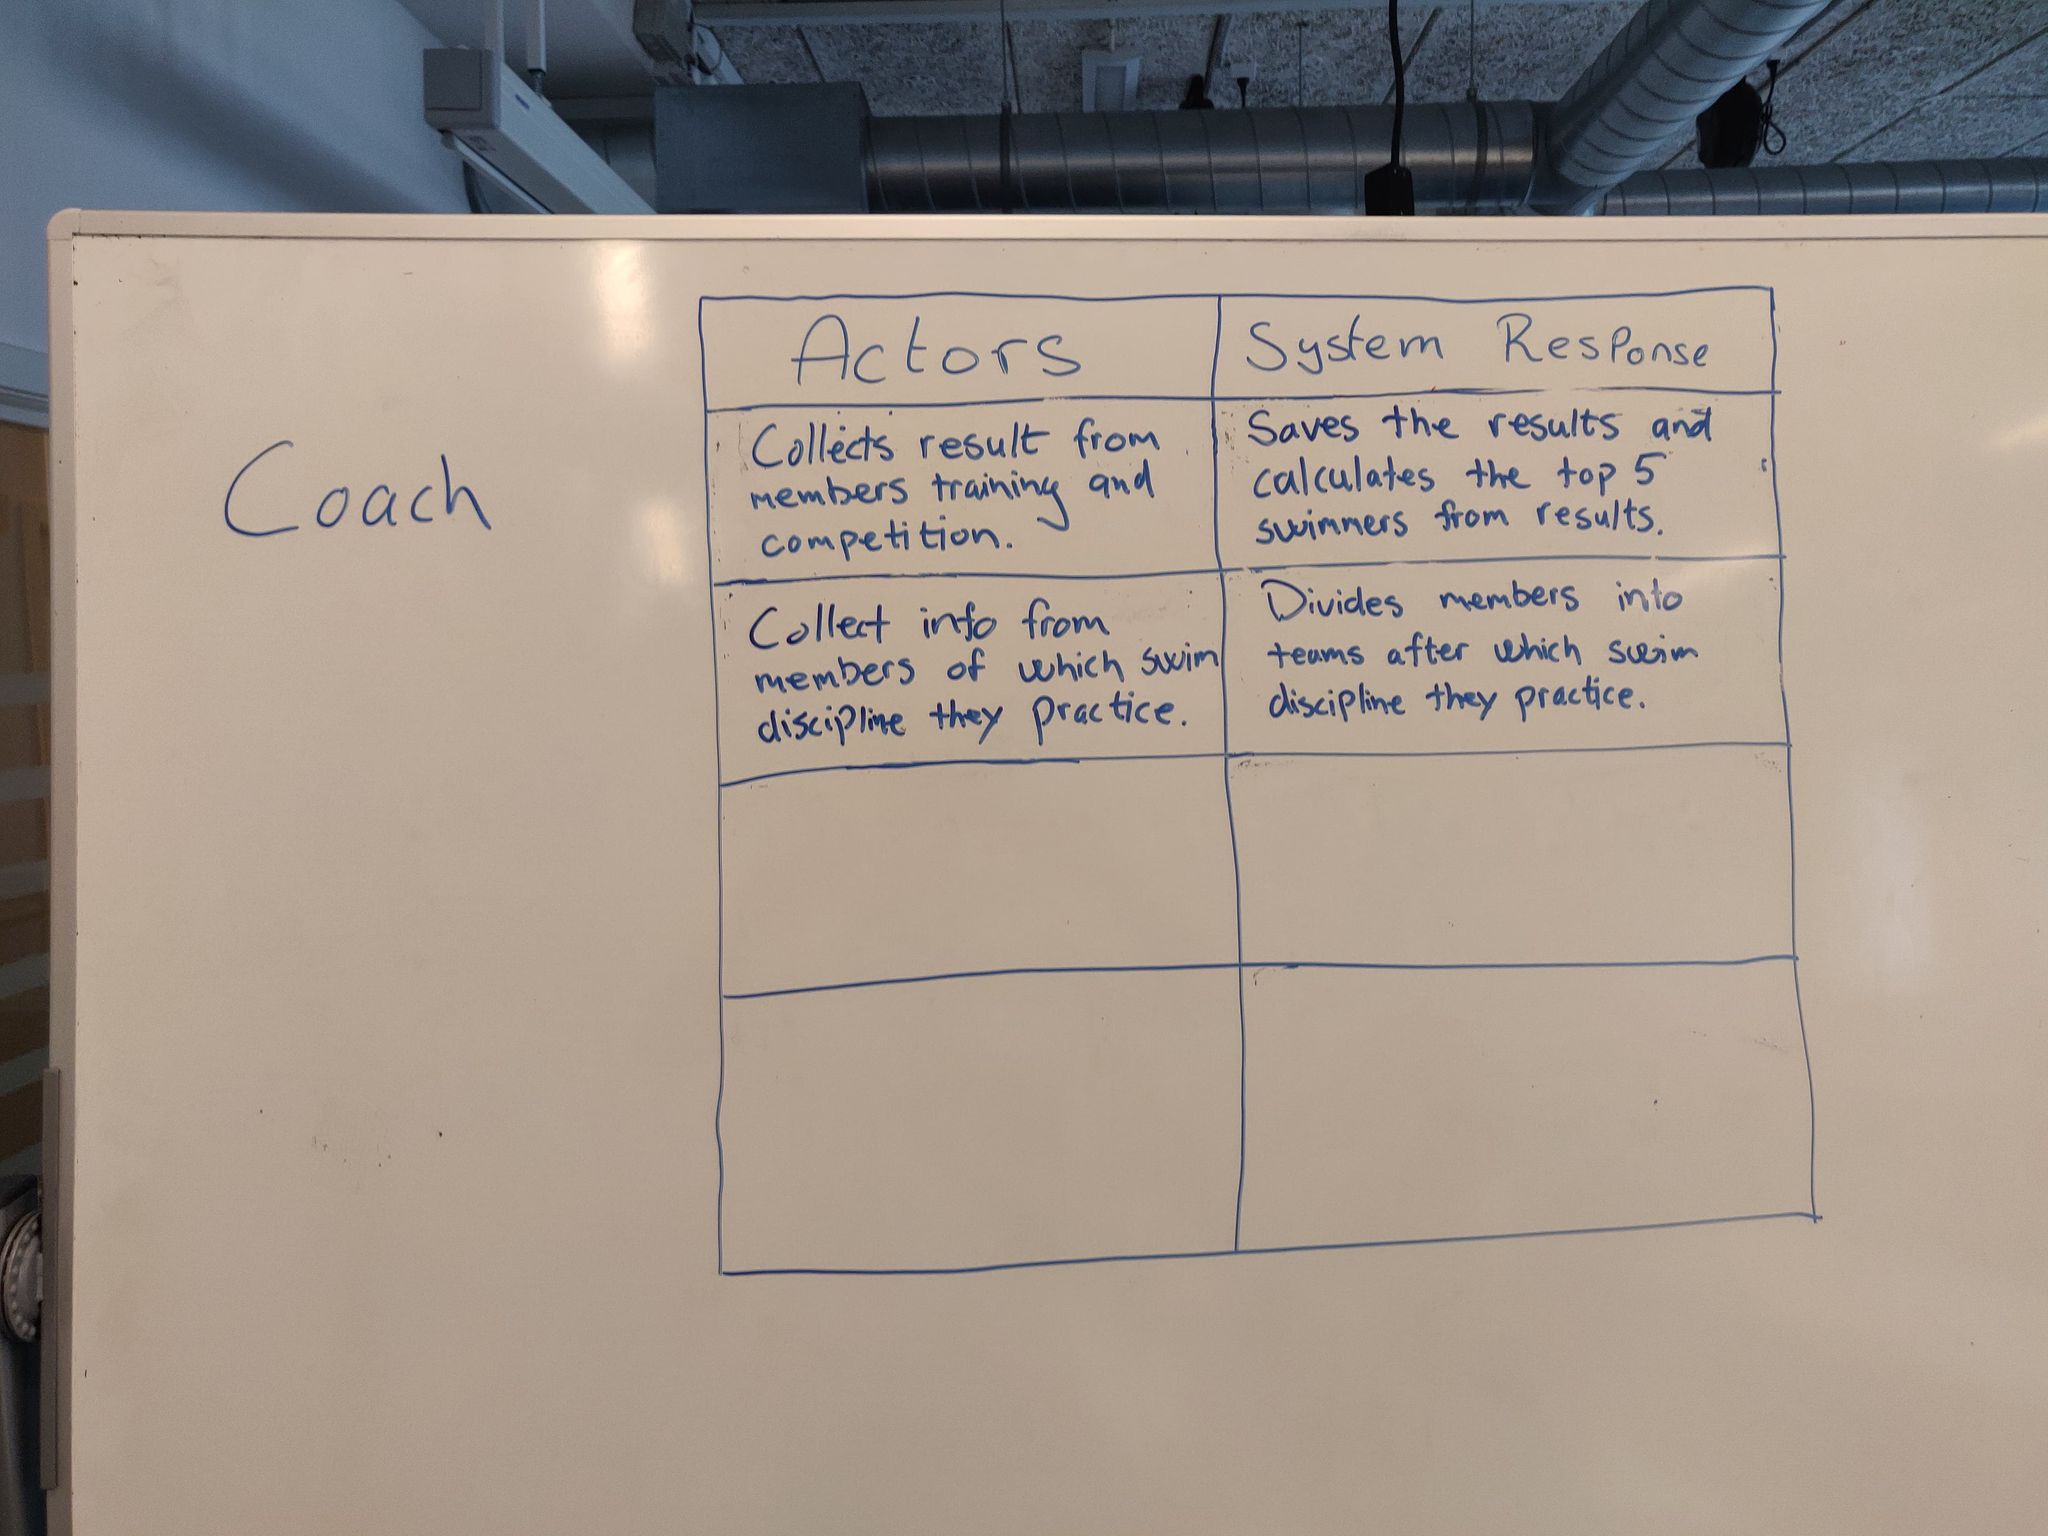 Actors
System Response
Coach
Collects result from
members training and
competition.
Saves the results and
calculates the top 5
swimmers from results.
Collect info from
members of which swim
discipline they practice.
Divides members into
teams after which swim
discipline they practice.